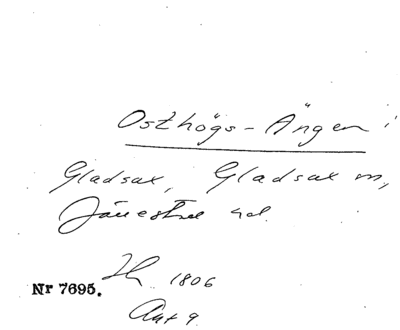 Osthögs-Ängen
Gladsax, Gladsax sn,
Järrestad hd.
1806
Nr 7695.
Akt 9